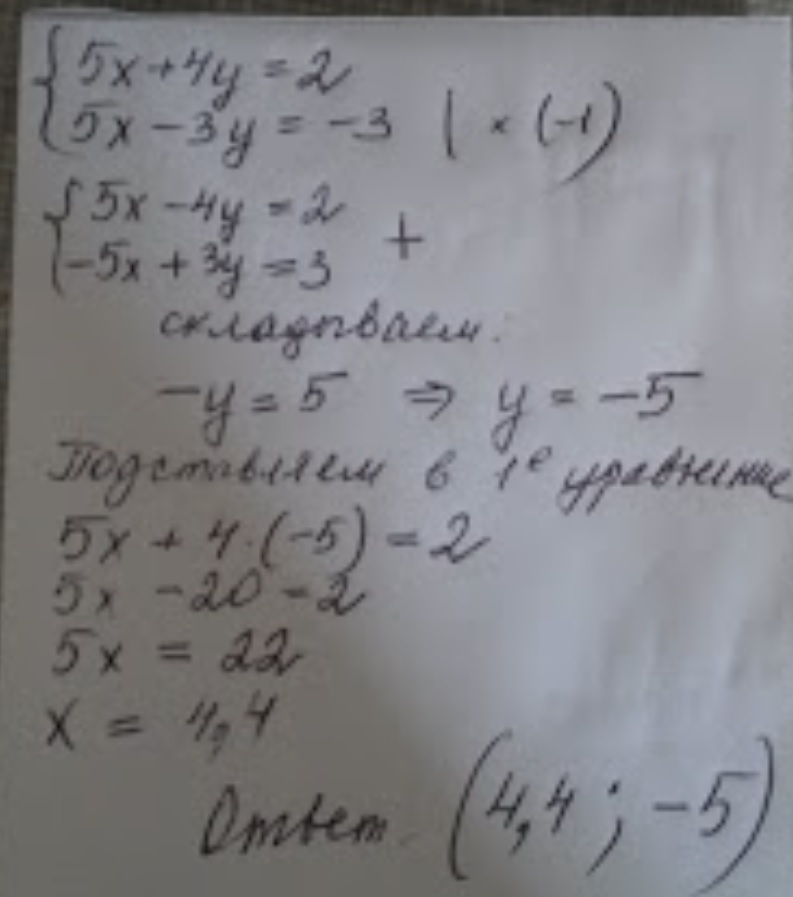 { 5x + 4y = 2
5x - 3y = -3 | × (-1)
{ 5x - 4y = 2
-5x + 3y = 3 +
складываем:
-y = 5 ⇒ y = -5
Подставляем в 1е уравнение
5x + 4·(-5) = 2
5x - 20 = 2
5x = 22
x = 4,4
Ответ. (4,4 ; -5)